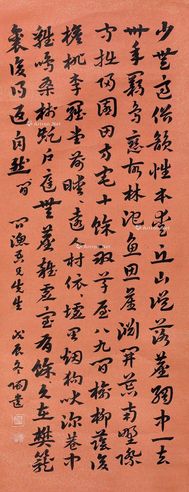 少無適俗韻性本愛丘山誤落塵網中一去
卅年羈鳥戀舊林池魚思故淵開荒南野際
守拙歸園田方宅十餘畝草屋八九間榆柳蔭後
檐桃李羅堂前曖曖遠人村依依墟里烟狗吠深巷中
雞鳴桑樹巔戶庭無塵雜虛室有餘閒久在樊籠
裏復得返自然 漁吾兄先生 戊辰冬